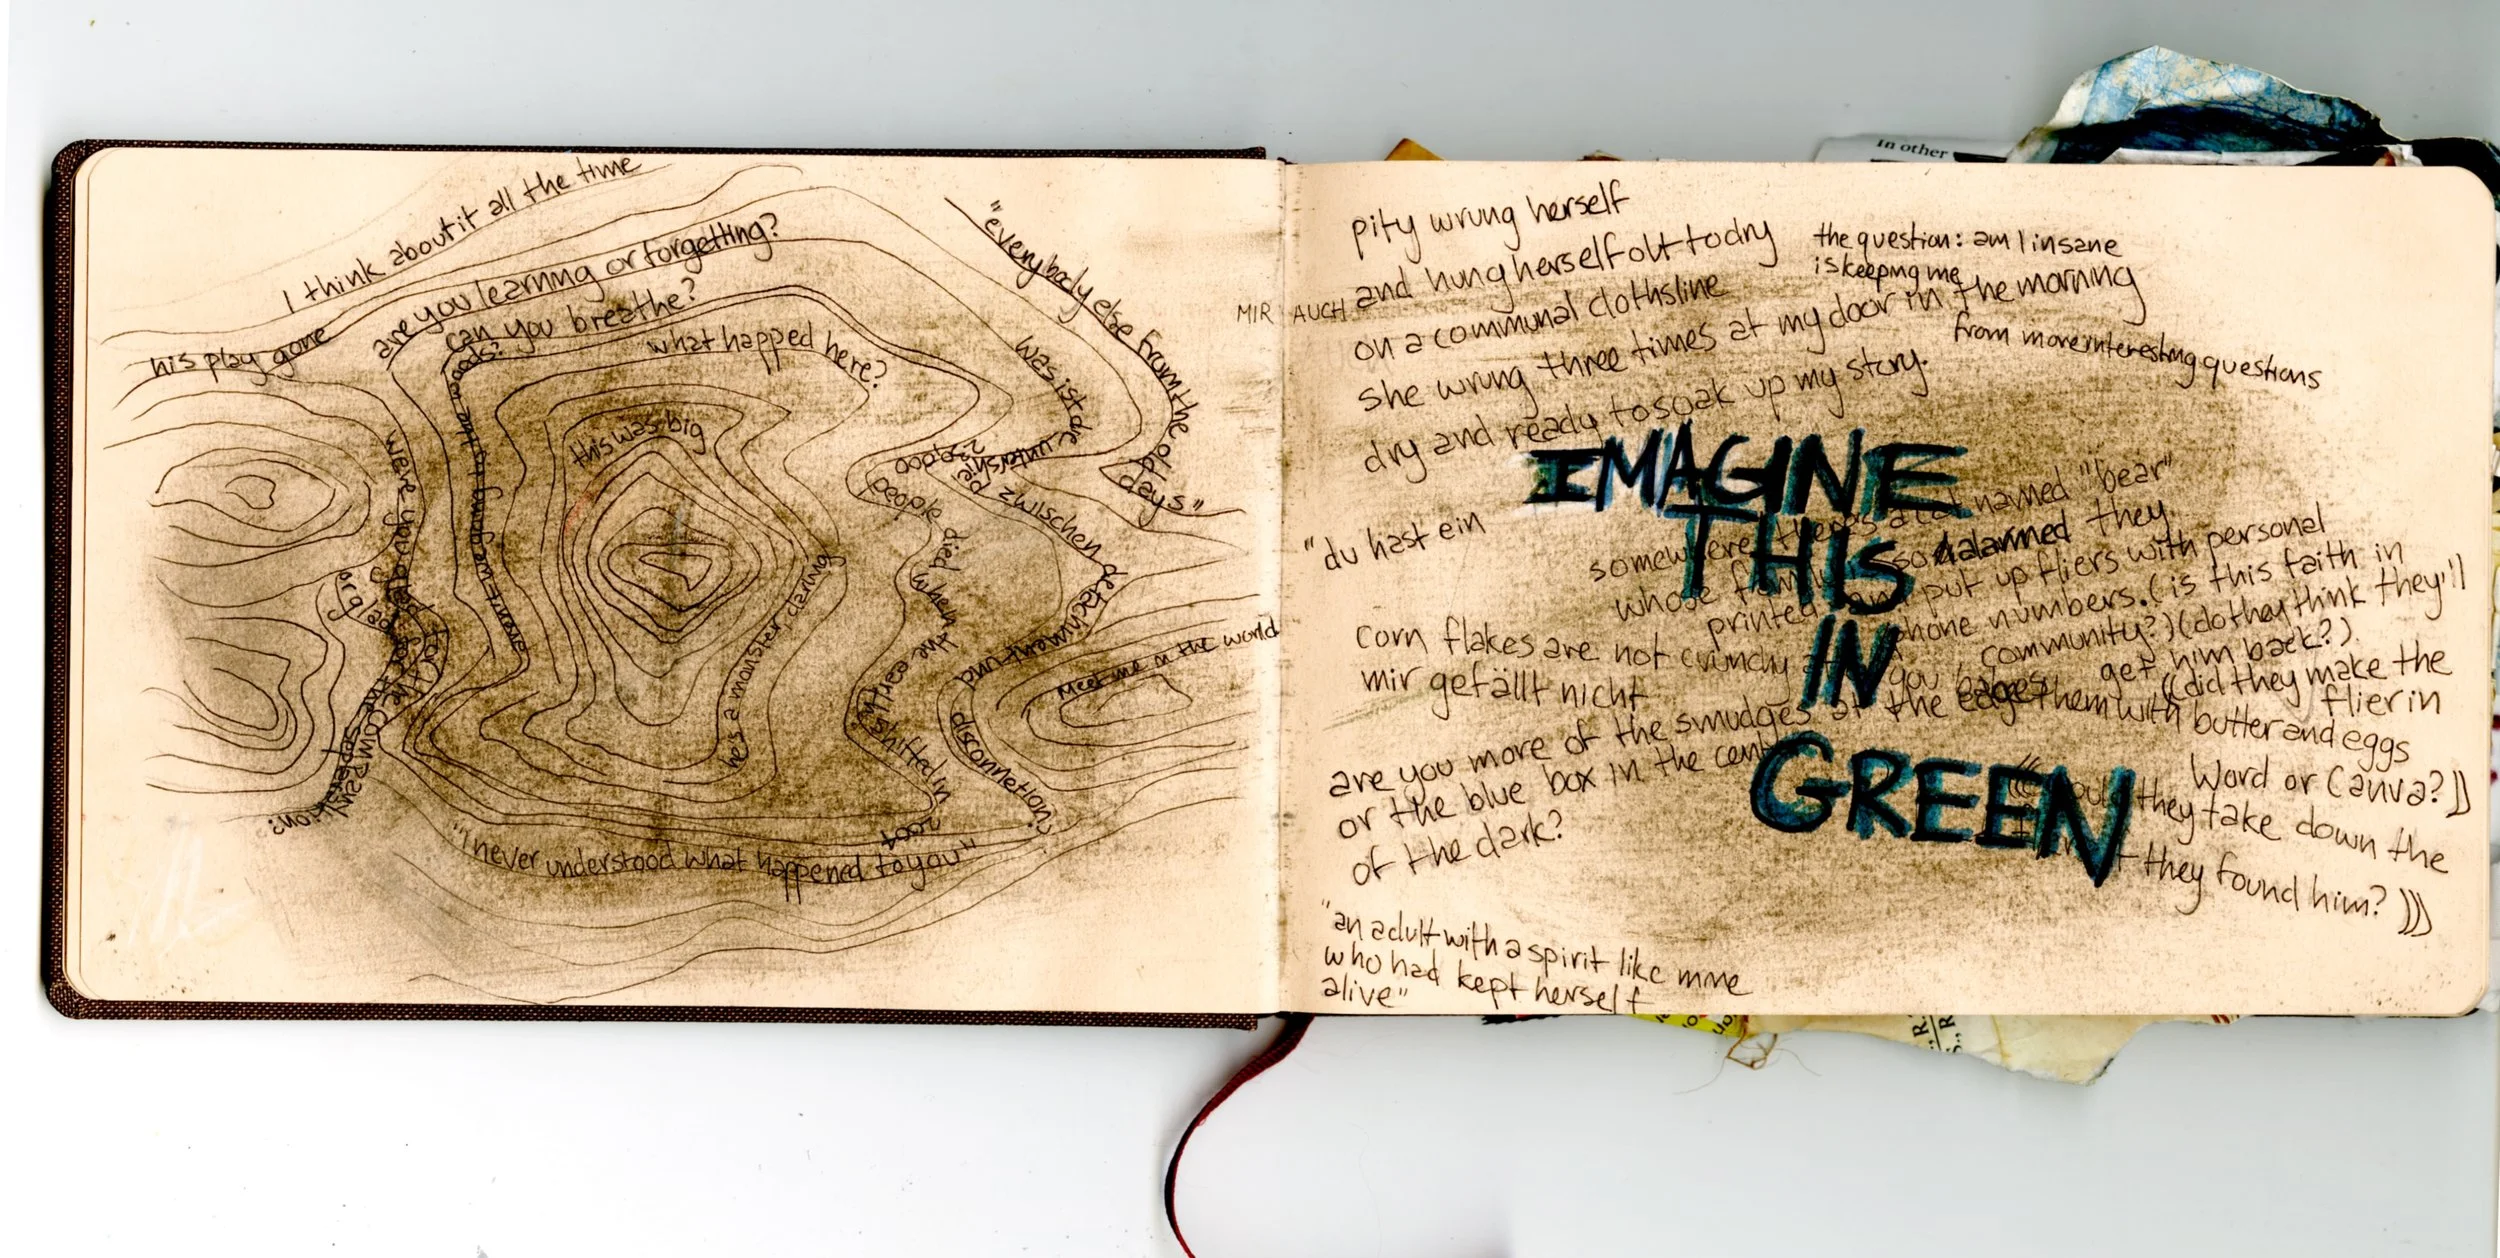 I think about it all the time
his play gone
are you learning or forgetting?
can you breathe?
what happed here?
this was big
"everybody else from the old days"
was ist der
untersheid zwischen detachment und disconnetion?
230,000 people died when the earth shifted in 2004
he's a monster, daring
were you glad for the company
or glad for the separation?
"I never understood what happened to you"
Meet me in the world
In other
pity wrung herself
and hung herself out to dry
on a communal clothsline
she wrung three times at my door in the morning
dry and ready to soak up my story.
MIR AUCH
the question: am I insane
is keeping me
from more interesting questions
IMAGINE
THIS
IN
GREEN
"du hast ein
somewhere there's a cat named "bear"
whose so alarmed they
printed and put up fliers with personal
phone numbers. (is this faith in
community?) (do they think they'll
get him back?)
((did they make the
flier in
Word or Canva?))
they take down the
they found him?)))
corn flakes are not crunchy you
mir gefällt nicht
them with butter and eggs
are you more of the smudges at the edges
or the blue box in the
of the dark?
"an adult with a spirit like mine
who had kept herself
alive"